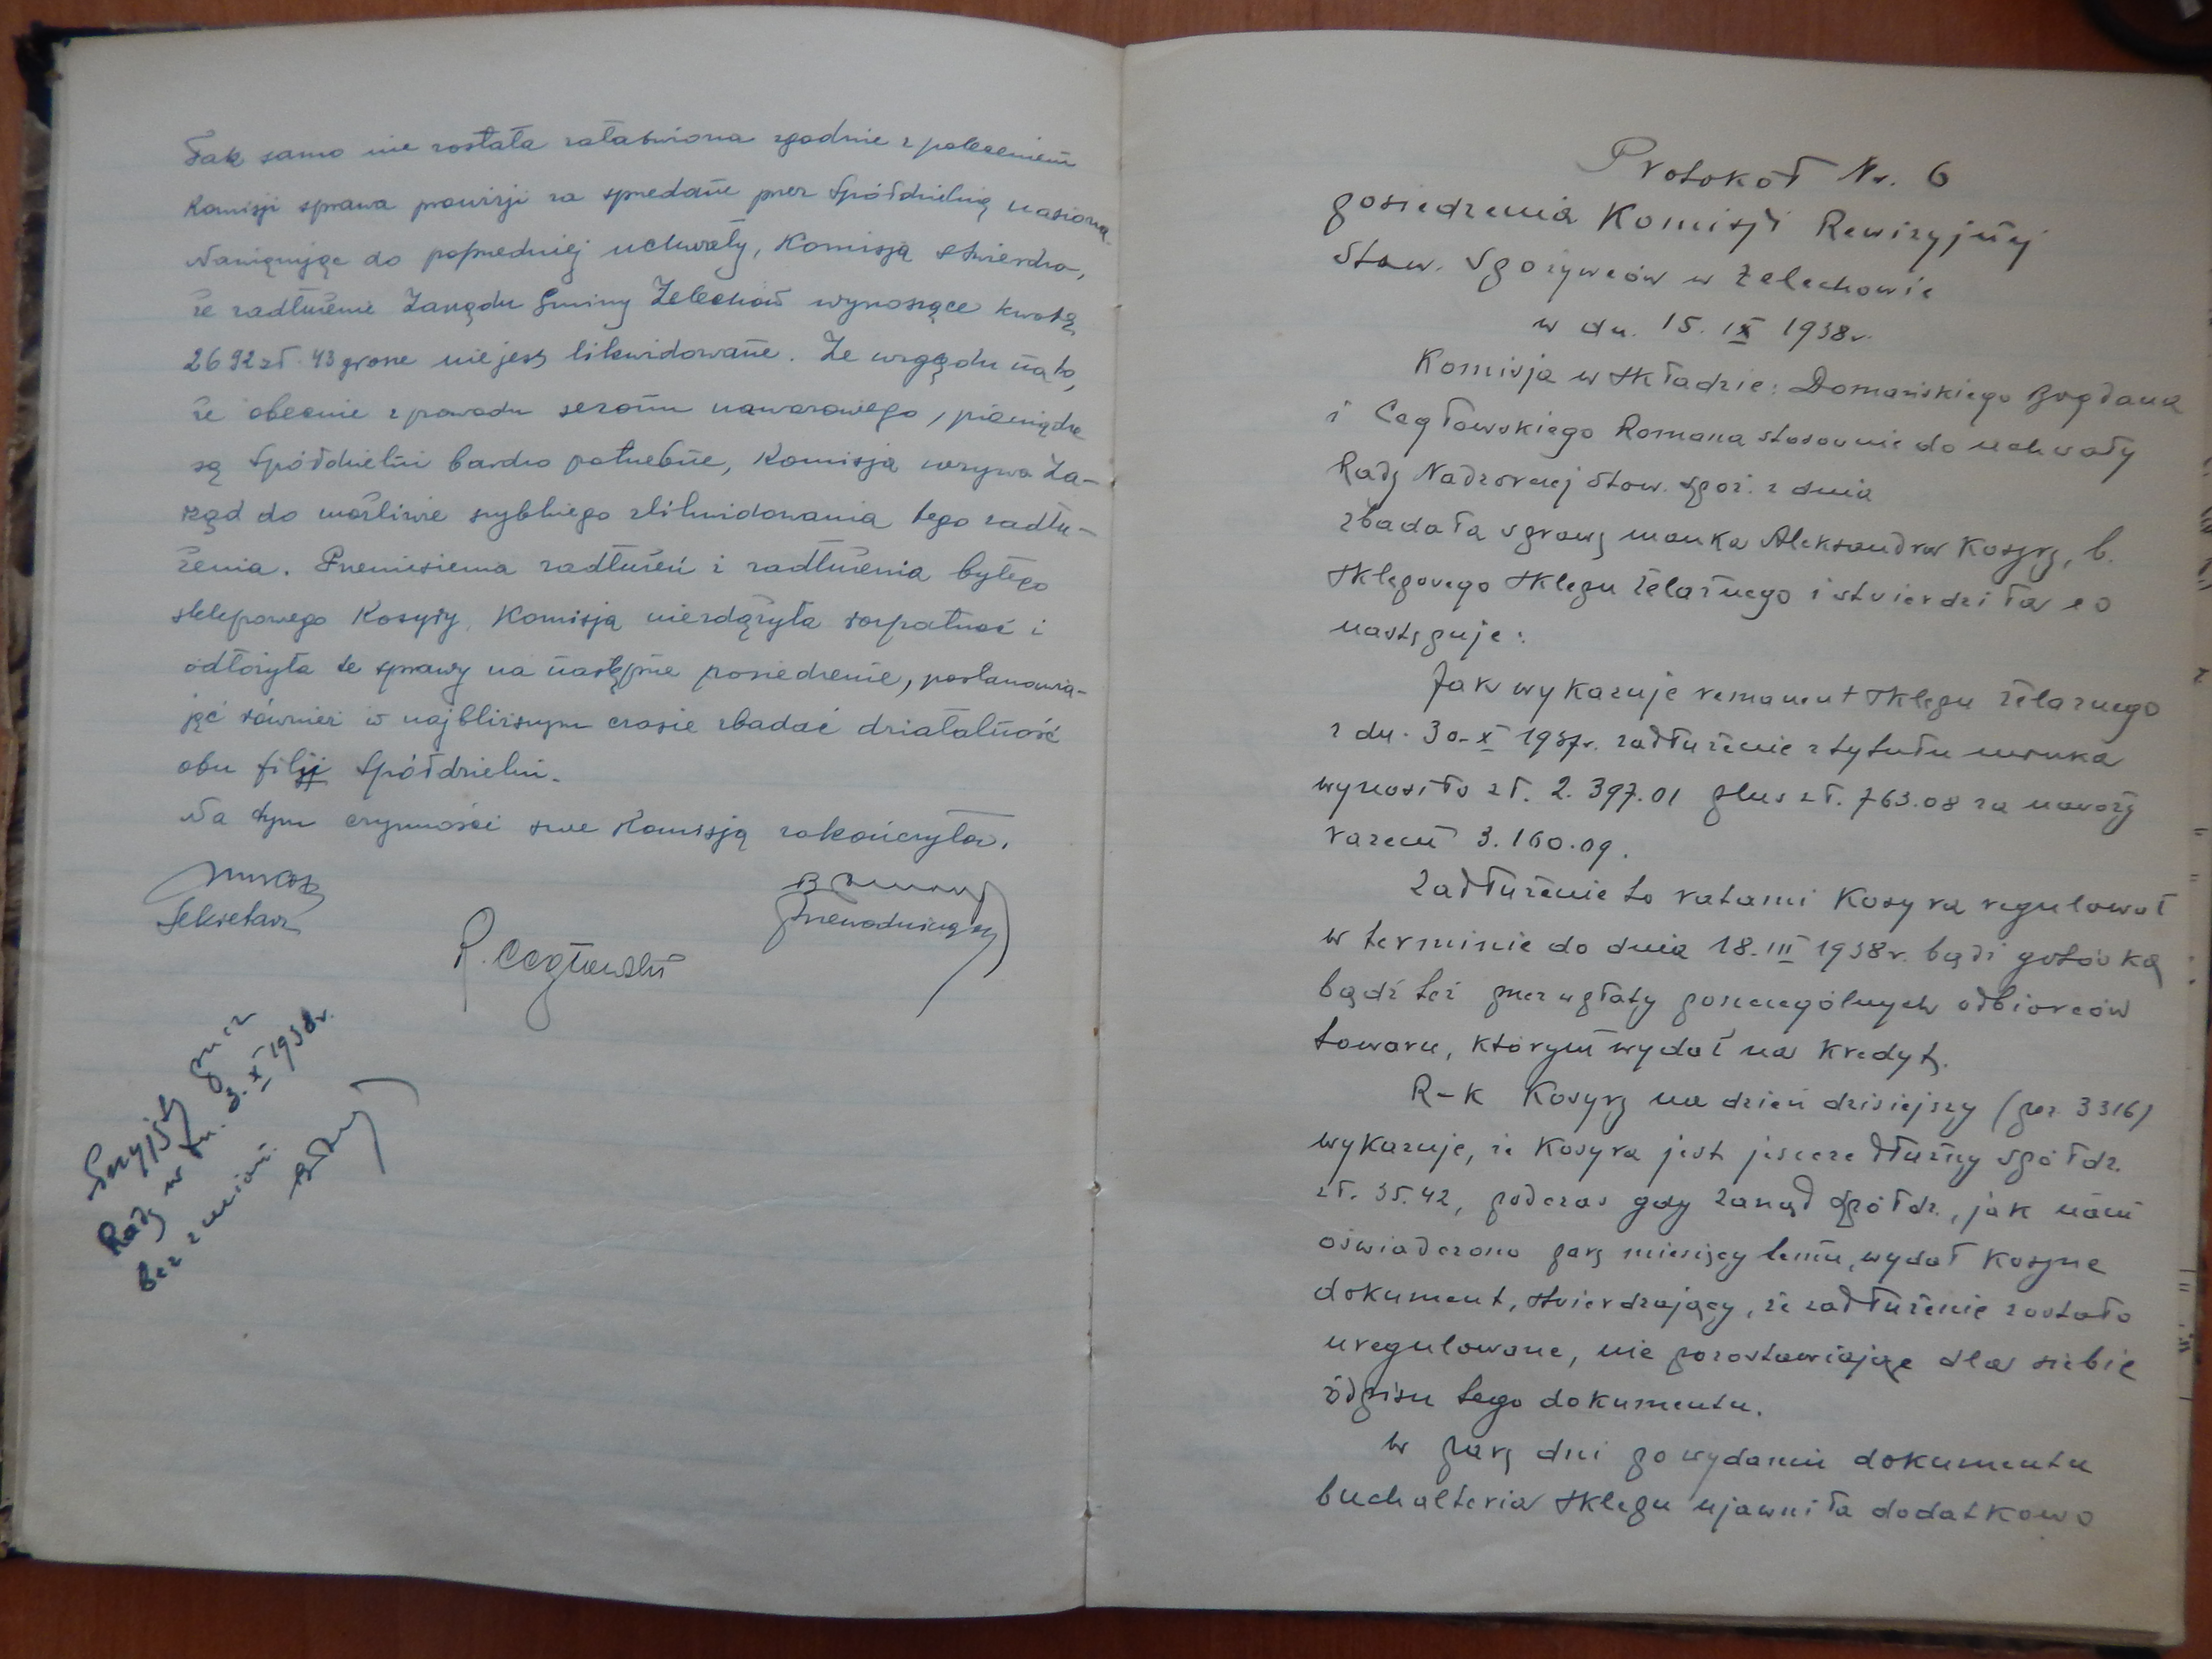 Tak samo nie została załatwiona zgodnie z poleceniem
Komisji sprawa prowizji za sprzedane przez Spółdzielnię nasiona.
Nawiązując do poprzedniej uchwały, Komisja stwierdza,
że zadłużenie Zarządu Gminy Żelechów wynoszące kwotę
2692 zł. 43 grosze nie jest likwidowane. Ze względu na to,
że obecnie z powodu sezonu nawozowego, pieniądze
są Spółdzielni bardzo potrzebne, Komisja wzywa Za-
rząd do możliwie szybkiego zlikwidowania tego zadłu-
żenia. Przeniesienia zadłużeń i zadłużenia byłego
sklepowego Kosyry, Komisja niezdążyła rozpatrzeć i
odłożyła te sprawy na następne posiedzenie, postanawia-
jąc również w najbliższym czasie zbadać działalność
obu filji Spółdzielni.
Na tym czynności swe Komisja zakończyła.
Sekretarz
Przewodniczący
R. Cegłowski
Przyjęty przez
Radę w dn. 3. X 1938r.
bez zmian.
Protokół Nr. 6
posiedzenia Komisji Rewizyjnej
Stow. Spożywców w Żelechowie
w dn. 15. IX 1938r.
Komisja w składzie: Domańskiego Bogdana
i Cegłowskiego Romana stosownie do uchwały
Rady Nadzorczej Stow. Spoż. z dnia
zbadała sprawę manka Aleksandra Kosyry, b.
sklepowego sklepu żelaznego i stwierdziła co
następuje:
Jak wykazuje remanent sklepu żelaznego
z dn. 30. X 1937r. zadłużenie z tytułu manka
wynosiło zł. 2.397.01 plus zł. 763.08 za nawozy
razem 3.160.09.
Zadłużenie to ratami Kosyra regulował
w terminie do dnia 18. III 1938r. bądź gotówką
bądź też przez wpłaty poszczególnych odbiorców
towaru, którym wydał na kredyt.
R-k Kosyry na dzień dzisiejszy (poz. 3316)
wykazuje, że Kosyra jest jeszcze dłużny spółdz.
zł. 35.42, podczas gdy zarząd spółdz., jak nam
oświadczono parę miesięcy temu, wydał Kosyrze
dokument, stwierdzający, że zadłużenie zostało
uregulowane, nie pozostawiając dla siebie
odpisu tego dokumentu.
W parę dni po wydaniu dokumentu
buchalteria sklepu ujawniła dodatkowo